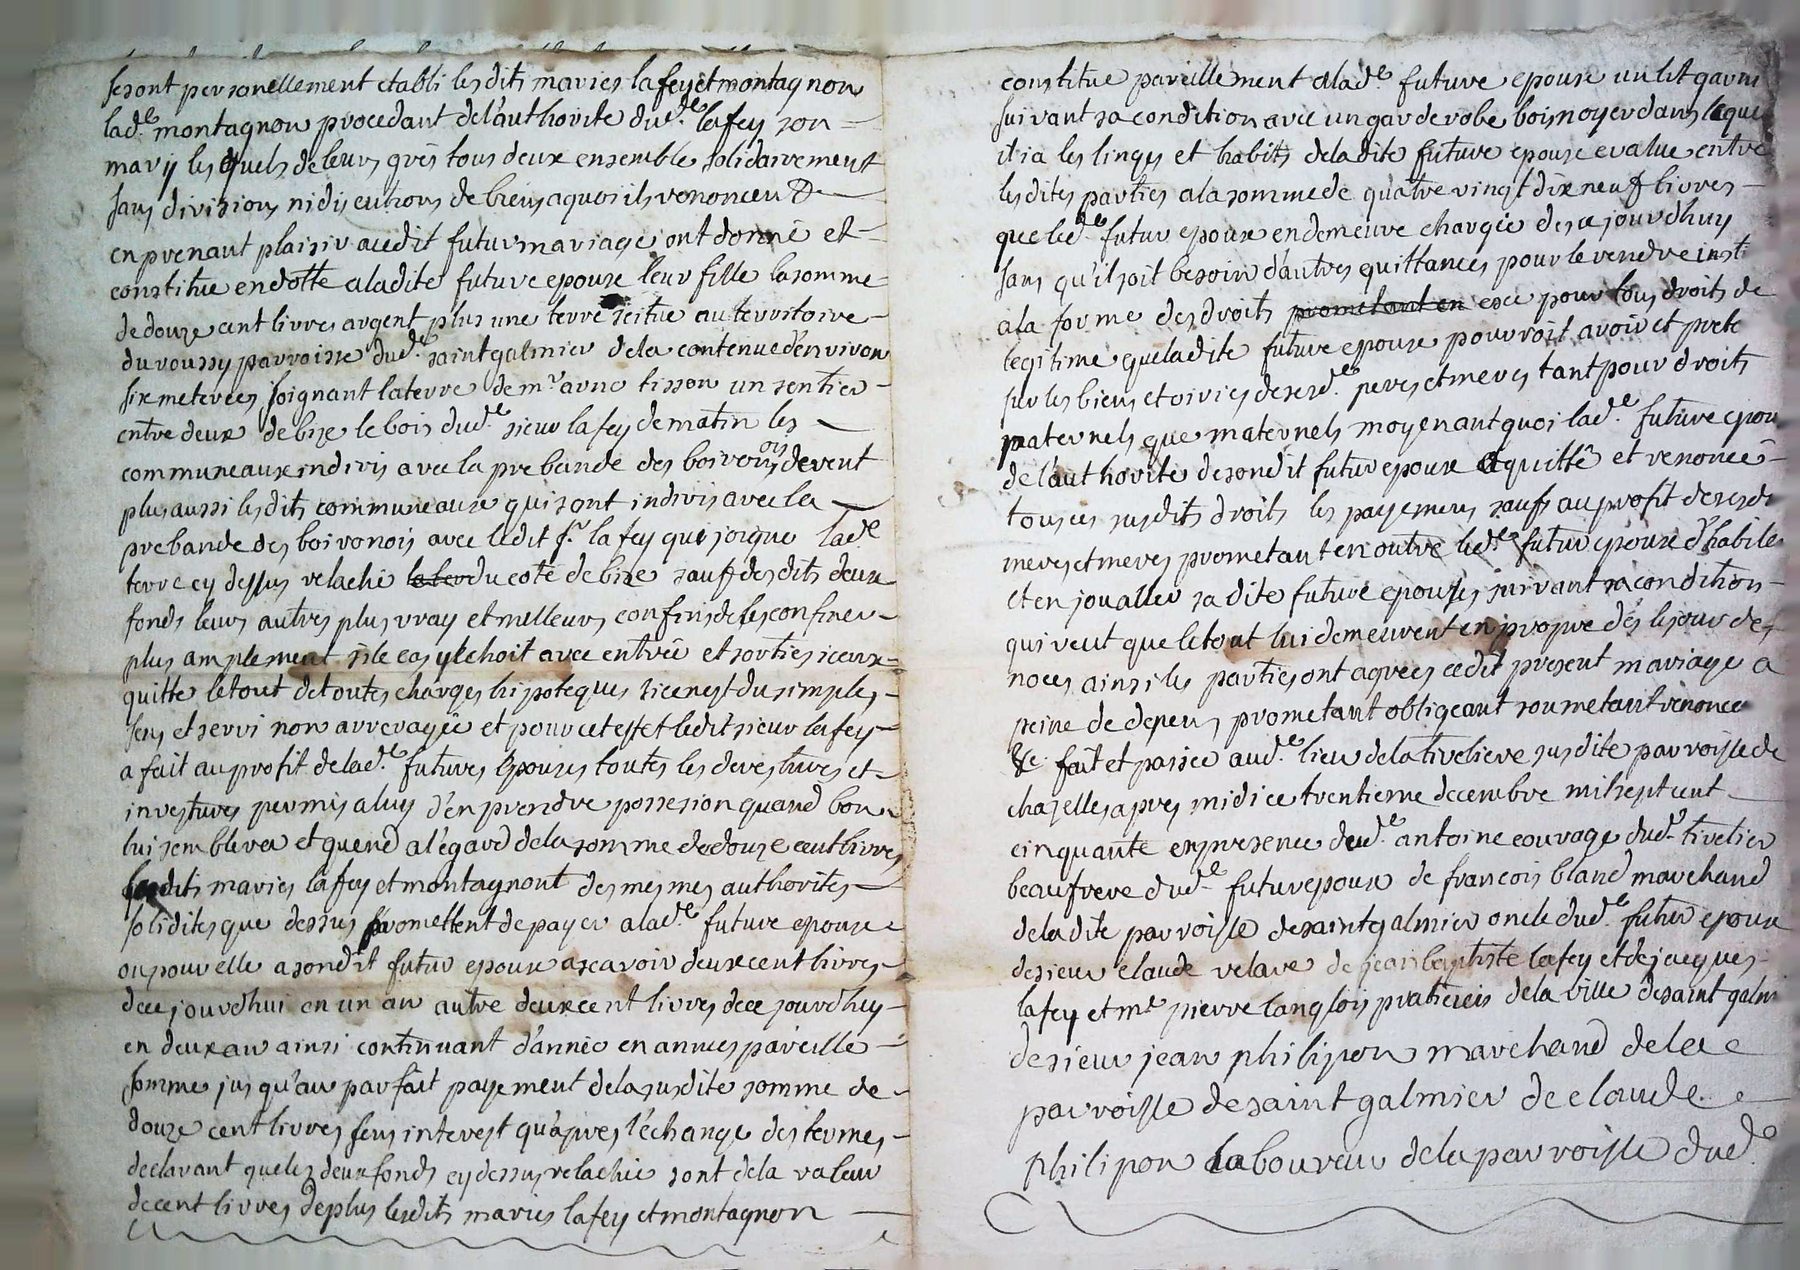 se sont personellement etabli lesdits maries lafey et montagnon
lad.e montagnon procedant de l'authorite dud.t lafey son
mary lesquels de leurs grès tous deux ensemble solidairement
sans divisions ni discutions de biens a quoi ils renoncent &
en prenant plaisir audit futur mariage ont donné et
constitue en dotte a ladite future epouse leur fille la somme
de douze cent livres argent plus une terre scitue au territoire
du roussy parroisse dud.e saint galmier de la contenue d'environ
six meterées joignant la terre de m.r arno tisson un sentier
entre deux de bize le bois dud.e sieur lafey de matin les
communeaux indivis avec la prebande des boivonois de vent
plus aussi lesdits communeaux qui sont indivis avec la
prebande des boivonois avec ledit s.r lafey qui joigne lad.e
terre cy dessus relaché du coté de bize sauf desdits deux
fonds leurs autres plus vray et milleurs confins de les confiner
plus amplement si le cas y echoit avec entrée et sorties iceux
quitte le tout de toutes charges hipoteques si ce nest du simple
sens et servi non arreragée et pour cet effet ledit sieur lafey
a fait au profit de lad.e futures epouses toutes les devestures et
investures permis a luy d'en prendre possesion quand bon
lui semblera et quend a l'égard de la somme de douze cent livres
lesdits maries laffey et montagnont des mesmes authorites
solidites que dessus promettent de payer a lad.e future epouse
ou pour elle a sondit futur epoux a scavoir deux cent livres
de ce jourd'hui en un an autre deux cent livres de ce jourdhuy
en deux an ainsi continuant d'année en annees pareille
somme jusqu'au parfait payement de la susdite somme de
douze cent livres sens interest qu'apres l'échange des termes
declarant que les deux fonds cy dessus relachée sont de la valeur
de cent livres de plus lesdits maries lafey et montagnon
constitue pareillement a lad.e future epouse un lit garni
suivant sa condition avec un garderobe bois noyer dans leque
il i a les linges et habits de ladite future epouse evalue entre
lesdites parties a la somme de quatre vingt dix neuf livres
que led.e futur epoux en demeure chargée des ce jourdhuy
sans qu'il soit besoin d'autres quittances pour le rendre
a la forme des droits prometant en ece pour tous droits de
legitime que ladite future epouse pourroit avoir et prete
sur les biens et oiries de sesd.e peres et meres tant pour droits
paternels que maternels moyenant quoi lad.e future epou
de l'authorité de sondit futur epoux a quitté et renoncé
tous ces susdits droits les payemens saufs au profit de sesd
meres et meres prometant en outre led.e futur epoux d'habiler
et en joualler sa dite future epouses suivant sa condition
qui veut que le tout lui demeurent en propre dés le jour de
noces ainsi les parties ont agrees cedit present mariage a
peine de depens prometant obligeant soumetant renonce
&c fait et passée aud.e lieu de la tiveliere susdite parroisse de
chazelles apres midi ce trentieme decembre mil sept cent
cinquante en presence dud.e antoine couvage dud.t tivelier
beaufrere dud.e futur epoux de francois bland marchand
de ladite parroisse de saint galmier oncle dud.e futur epoux
de sieur claude relave de jean baptiste lafey et de jacques
lafey et m.e pierre langlois praticien de la ville de saint galmi
de sieur jean philippon marchand de la
parroisse de saint galmier de claude
philipon laboureur de la parroisse dud.e